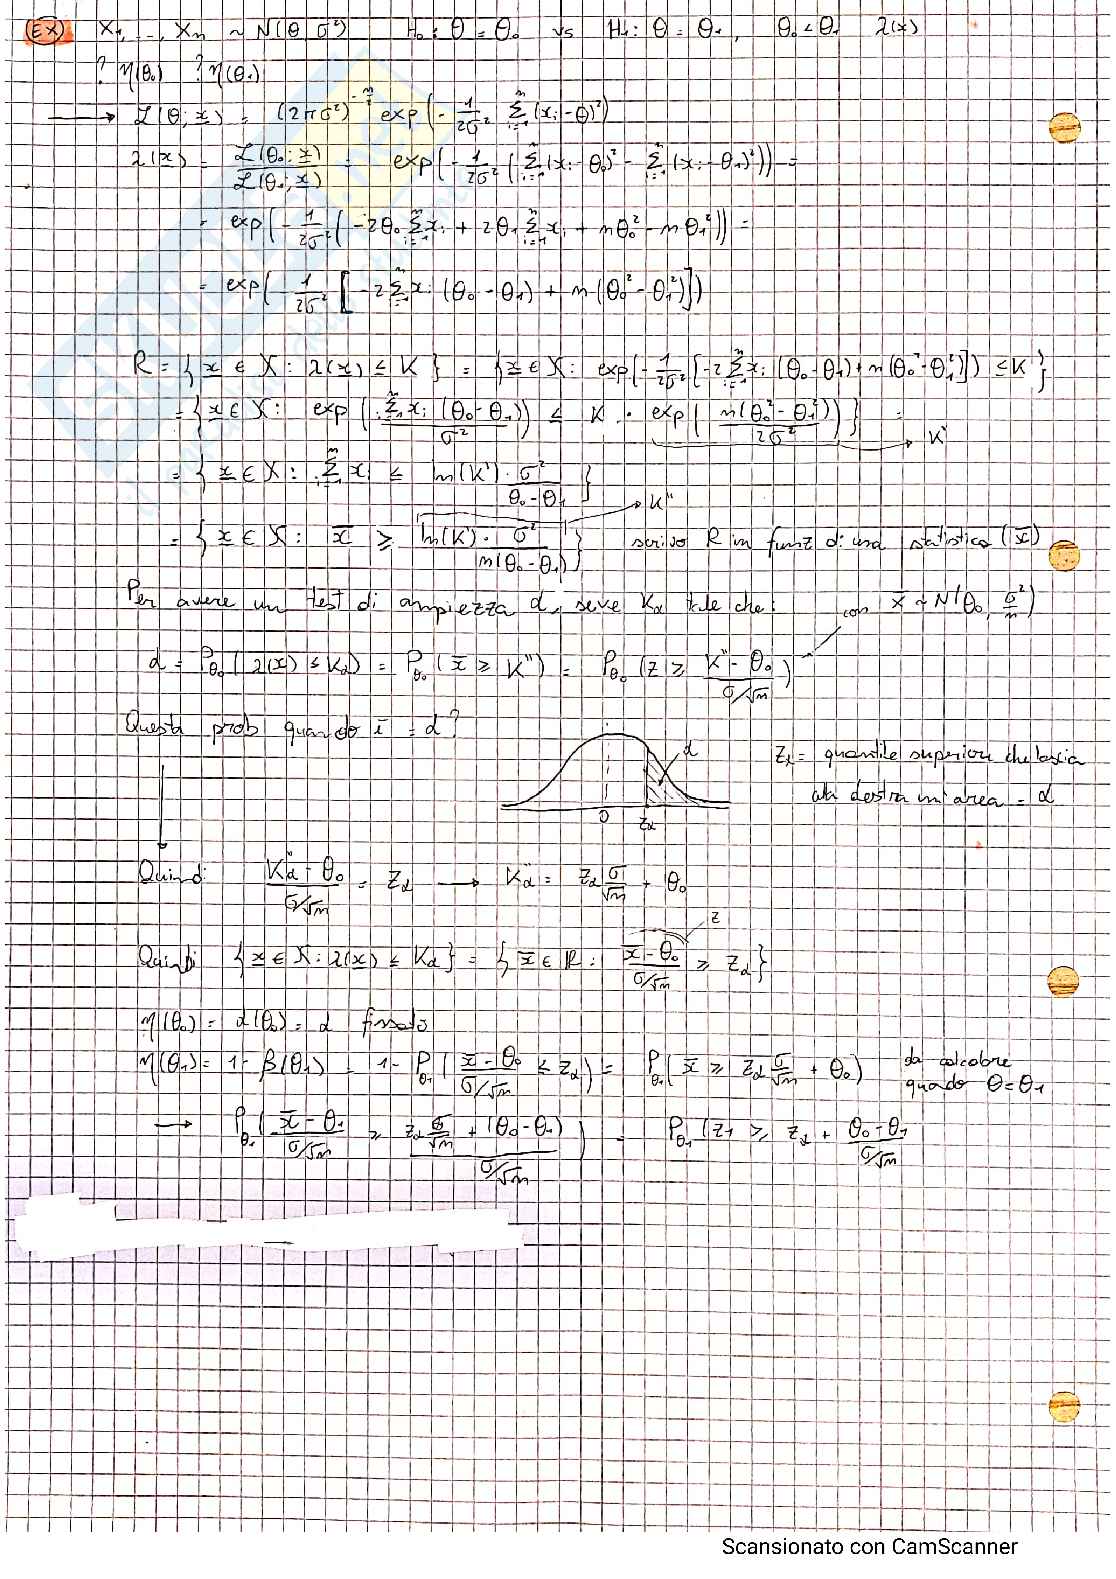 EX) X₁, ..., Xₙ ~ N(θ, σ²) H₀: θ = θ₀ vs H₁: θ = θ₁, θ₀ < θ₁ λ(x)
? η(θ₀) ? η(θ₁)
→ L(θ; x) = (2πσ²)^(-n/2) exp(- 1/2σ² Σᵢ₌₁ⁿ (xᵢ - θ)²)
λ(x) = L(θ₀; x) / L(θ₁; x) = exp(- 1/2σ² (Σᵢ₌₁ⁿ (xᵢ - θ₀)² - Σᵢ₌₁ⁿ (xᵢ - θ₁)²)) =
= exp(- 1/2σ² (-2θ₀ Σᵢ₌₁ⁿ xᵢ + 2θ₁ Σᵢ₌₁ⁿ xᵢ + nθ₀² - nθ₁²)) =
= exp(- 1/2σ² [-2 Σᵢ₌₁ⁿ xᵢ (θ₀ - θ₁) + n(θ₀² - θ₁²)])
R = {x ∈ X : λ(x) ≤ K} = {x ∈ X : exp(- 1/2σ² [-2 Σᵢ₌₁ⁿ xᵢ (θ₀ - θ₁) + n(θ₀² - θ₁²)]) ≤ K}
= {x ∈ X : exp(Σᵢ₌₁ⁿ xᵢ (θ₀ - θ₁) / σ²) ≤ K · exp(n(θ₀² - θ₁²) / 2σ²)} = → K'
= {x ∈ X : Σᵢ₌₁ⁿ xᵢ ≤ ln(K') · σ² / θ₀ - θ₁} → K''
= {x ∈ X : x̄ ≥ ln(K') · σ² / n(θ₀ - θ₁)} scrivo R in funz di una statistica (x̄)
Per avere un test di ampiezza α, serve Kα tale che: con X̄ ~ N(θ₀, σ²/n)
α = P_θ₀(λ(x) ≤ Kα) = P_θ₀(x̄ ≥ K'') = P_θ₀(Z ≥ K'' - θ₀ / σ/√n)
Questa prob quando è = α?
α
0 zα
zα = quantile superiore che lascia
alla destra un' area = α
Quindi K''α - θ₀ / σ/√n = zα → K''α = zα σ/√n + θ₀
Quindi {x ∈ X : λ(x) ≤ Kα} = {x̄ ∈ R : x̄ - θ₀ / σ/√n ≥ zα} z
η(θ₀) = α(θ₀) = α fissato
η(θ₁) = 1 - β(θ₁) = 1 - P_θ₁(x̄ - θ₀ / σ/√n ≤ zα) = P_θ₁(x̄ ≥ zα σ/√n + θ₀) da calcolare
quando θ = θ₁
→ P_θ₁(x̄ - θ₁ / σ/√n ≥ zα σ/√n + (θ₀ - θ₁) / σ/√n) = P_θ₁(Z₁ ≥ zα + θ₀ - θ₁ / σ/√n)
Scansionato con CamScanner